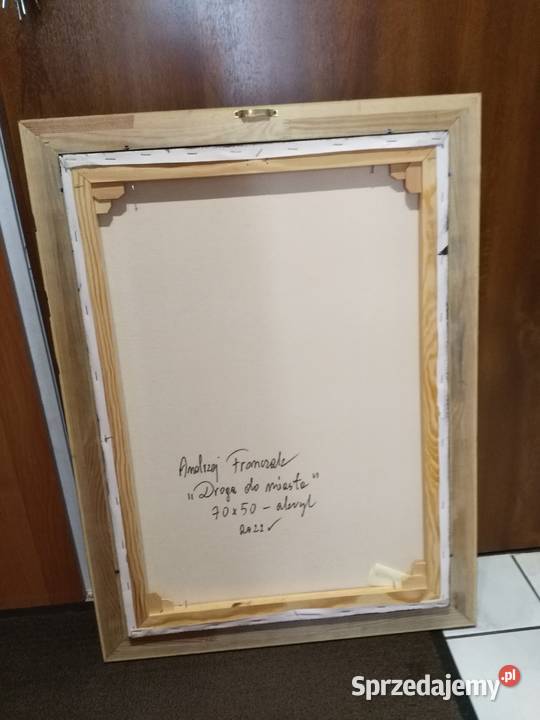 Andrzej Franczak
„Droga do miasta"
70x50 - akryl
2022
Sprzedajemy.pl